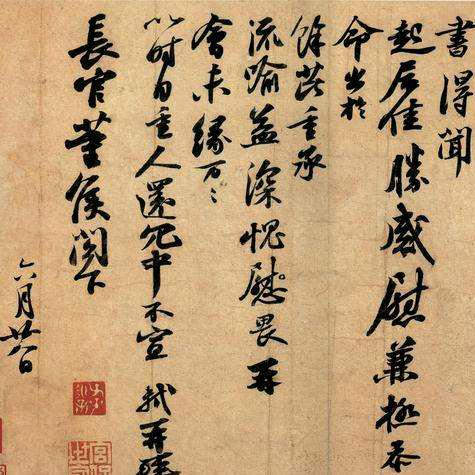 書得聞
起居佳勝感慰兼極忝
命出於
餘芘重承
流喻益深愧慰畏再
會未緣万〻
以時自重人還冗中不宣 軾再拜
長官董侯閣下
六月廿八日